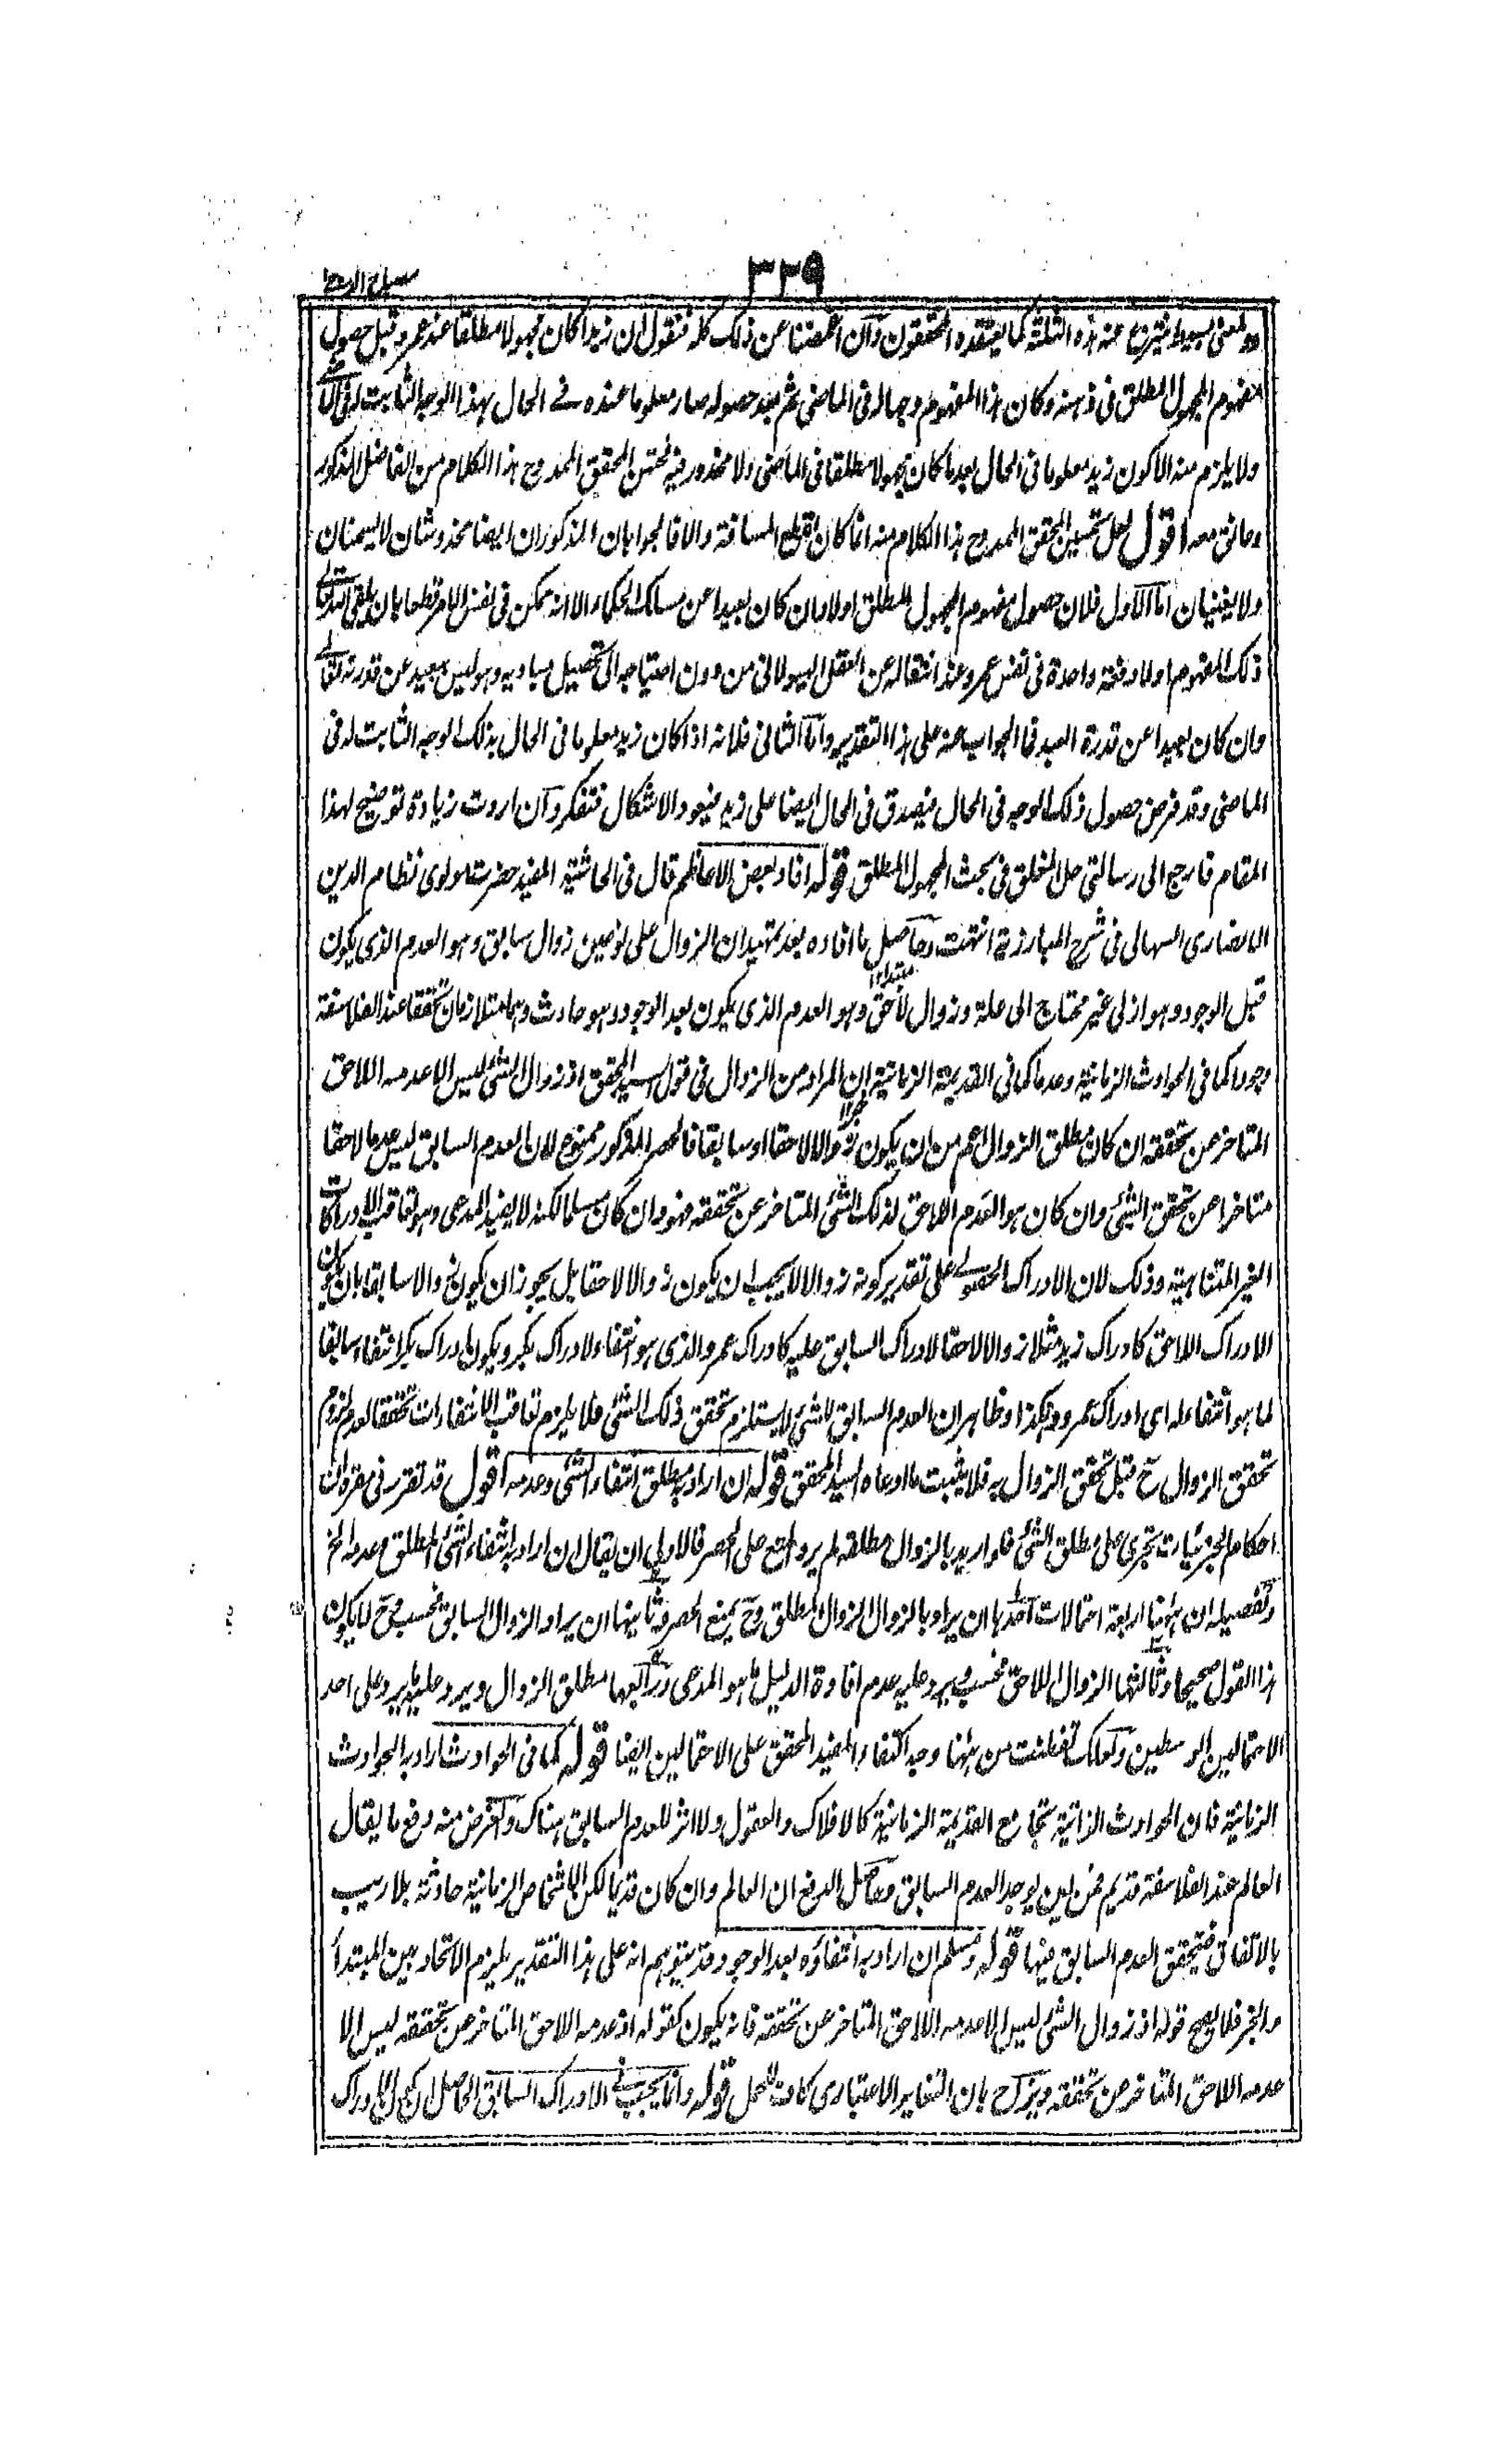 ٣٢٩
مصباح الدجى
او لمعنى بسيط ينتزع عنه هذه الثلثة كما يعتقده المحققون وان اغمضنا عن ذلك كله فنقول ان زيدا كان مجهولا مطلقا عند عمرو قبل حصول
مفهوم المجهول المطلق فى ذهنه وكان هذا المفهوم وجها له فى الماضى ثم بعد حصوله صار معلوما عنده فے الحال بهذا الوجه الثابت له فى
ولا يلزم منه الا كون زيد معلوما فى الحال بعد ما كان مجهولا مطلقا فى الماضى ولا محذور فيه فحسن المحقق الممدوح هذا الكلام من الفاضل المذكور
وعانق معه اقول لعل تحسين المحقق الممدوح هذا الكلام منه انما كان لقطع المسافة والا فالجوابان المذكوران ايضا مخدوشان لا يسمنان
ولا يغنيان اما الاول فلان حصول مفهوم المجهول المطلق اولا وان كان بعيدا عن مسالك الحكماء الا انه ممكن فى نفس الامر قطعا بان يلقى الله تعالے
ذلك المفهوم اولا دفعة واحدة فى نفس عمرو عند انتقاله عن العقل الهيولانى من دون احتياجه الى تحصيل مباديه وهو ليس ببعيد عن قدرته تعالے
وان كان بعيدا عن قدرة العبد فما الجواب عنه على هذا التقدير واما الثانى فلانه اذا كان زيد معلوما فى الحال بذلك الوجه الثابت له فى
الماضى وقد فرض حصول ذلك الوجه فى الحال فيصدق فى الحال ايضا على زيد فيعود الاشكال فتفكر وان اردت زيادة توضيح لهذا
المقام فارجع الى رسالتى حل المغلق فى بحث المجهول المطلق قوله افاد بعض الاعاظم قال فى الحاشية المفيد حضرت مولوى نظام الدين
الانصارى السهالى فى شرح المبارزية انتهت وحاصل ما افاده بعد تمهيد ان الزوال على نوعين زوال سابق وهو العدم الذى يكون
قبل الوجود وهو ازلى غير محتاج الى علة وزوال لاحق وهو العدم الذى يكون بعد الوجود وهو حادث وهما متلازمان تحققا عند الفلاسفة
مبتدأ ١٢
وجودا كما فى الحوادث الزمانية وعدما كما فى القديمة الزمانية ان المراد من الزوال فى قول السيد المحقق اذ زوال الشئ ليس الا عدمه اللاحق
المتاخر عن تحققه ان كان مطلق الزوال اعم من ان يكون زوالا لاحقا او سابقا فالحصر المذكور ممنوع لان العدم السابق ليس عدما لاحقا
متاخرا عن تحقق الشئ وان كان هو العدم اللاحق لذلك الشئ المتاخر عن تحققه فهو وان كان مسلما لكنه لا يفيد المدعى وهو تعاقب الادراكات
الغير المتناهية وذلك لان الادراك الحصولے على تقدير كونه زوالا لا يجب ان يكون زوالا لاحقا بل يجوز ان يكون زوالا سابقا بان يكون
الادراك اللاحق كادراك زيد مثلا زوالا لاحقا لادراك السابق عليه كادراك عمرو الذى هو انتفاء لادراك بكر ويكون ادراك بكر انتفاء سابقا
لما هو انتفاء له اى ادراك عمرو وهكذا وظاهر ان العدم السابق لشئ لا يستلزم تحقق ذلك الشئ فلا يلزم تعاقب الانتفاءات تحققا لعدم لزوم
تحقق الزوال ح قبل تحقق الزوال به فلا يثبت ما ادعاه السيد المحقق قوله ان اراد به مطلق انتفاء الشئ وعدمه اقول قد تقرر فى مقره ان
احكام الجزئيات تجرى على مطلق الشئ فلو اريد بالزوال مطلقه لم يرد المنع على الحصر فالاولى ان يقال ان اراد به انتفاء الشئ المطلق وعدمه الخ
وتفصيله ان ههنا اربعة احتمالات احدها ان يراد بالزوال الزوال المطلق وح يمنع الحصر وثانيها ان يراد الزوال السابق فحسب وح لا يكون
هذا القول صحيحا وثالثها الزوال اللاحق فحسب ويرد عليه عدم افادة الدليل ما هو المدعى ورابعها مطلق الزوال ويرد عليه ما يرد على احد
الاحتمالين الوسطين ولعلك تفطنت من ههنا وجه اكتفاء المفيد المحقق على الاحتمالين ايضا قوله كما فى الحوادث اراد به الحوادث
الزمانية فان الحوادث الذاتية تجامع القديمة الزمانية كالافلاك والعقول ولا اثر للعدم السابق هناك والغرض منه دفع ما يقال
العالم عند الفلاسفة قديم فمن اين يوجد العدم السابق وحاصل الدفع ان العالم وان كان قديما لكن الاشخاص الزمانية حادثة بلا ريب
بالاتفاق فيتحقق العدم السابق فيها قوله ومسلم ان اراد به انتفاؤه بعد الوجود قد يتوهم انه على هذا التقدير يلزم الاتحاد بين المبتدأ
والخبر فلا يصح قوله اذ زوال الشئ ليس الا عدمه اللاحق المتاخر عن تحققه فانه يكون كقوله اذ عدمه اللاحق المتاخر عن تحققه ليس الا
عدمه اللاحق المتاخر عن تحققه ويزاح بان التغاير الاعتبارى كاف للحمل قوله وانما يجب فے الادراك السابق الحاصل ان كل ادراك